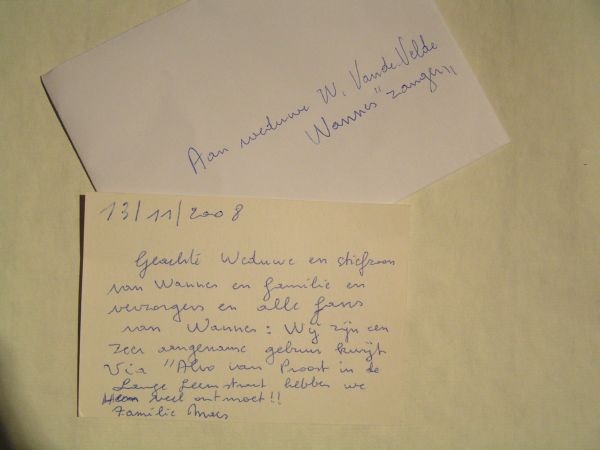 Aan weduwe W. Vande Velde
Wannes "zanger"
13/11/2008
Geachte Weduwe en stiefzoon
van Wannes en familie en
verzorgers en alle fans
van Wannes: Wij zijn een
zeer aangename gebuur kwijt
Via "Alvo van Proost in de
Lange Leemstraat hebben we
Hem veel ontmoet!!
Familie Maes